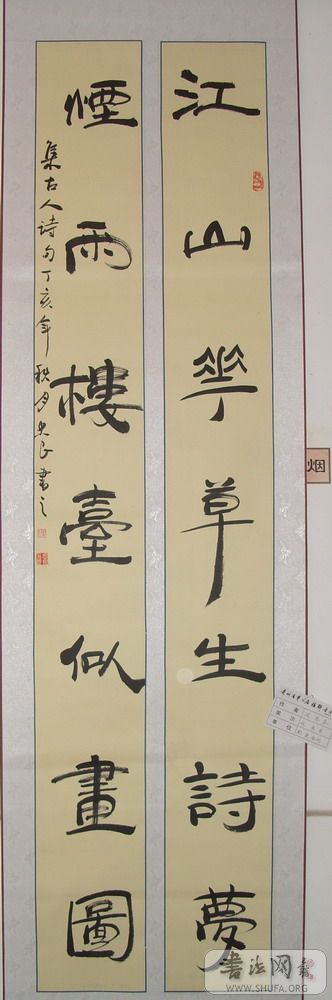 江山花草生詩夢
煙雨樓臺似畫圖
集古人詩句丁亥年秋月史良書之
烟
作者
书法网
WWW.SHUFA.ORG